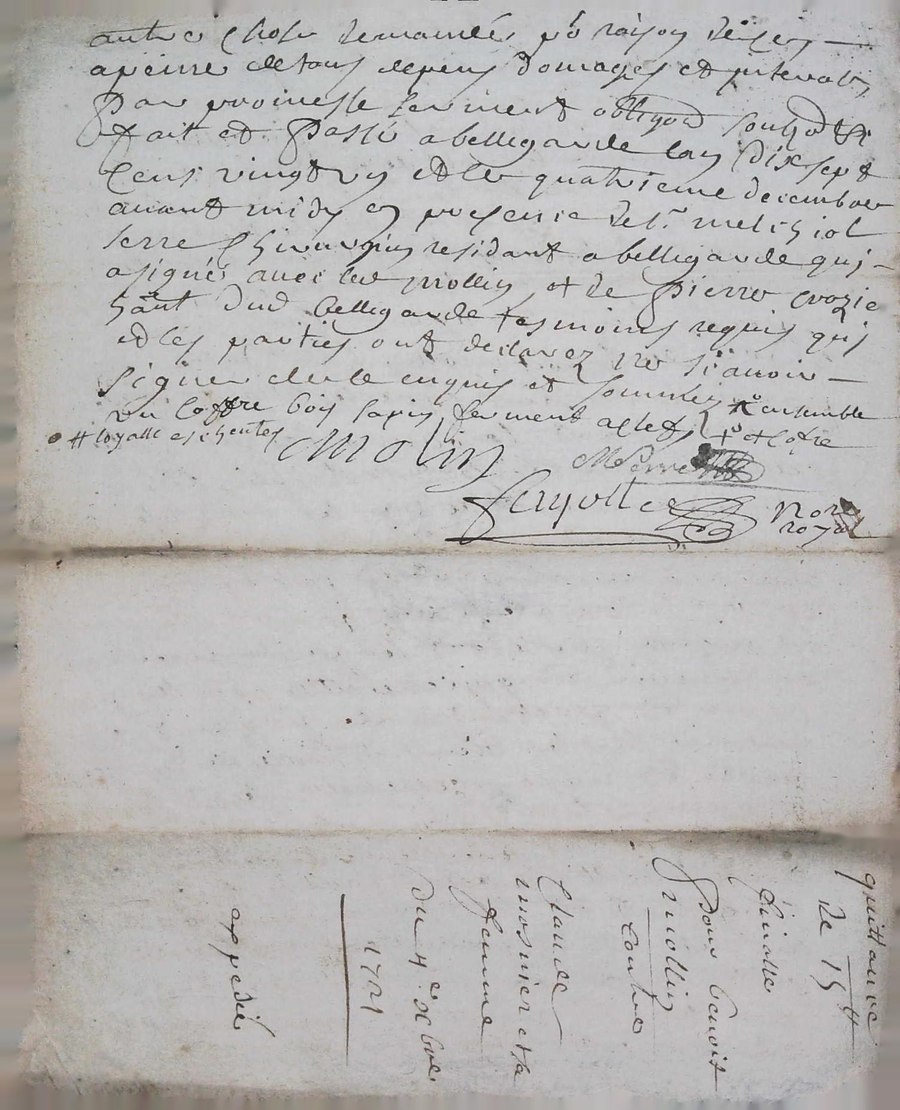 autre chose demander pr raison de ce
a peine de tous depens domages et interests
par promesse serment obligaon soubmon
fait et passé a bellegarde lan dix sept
cens vingt un et le quatrieme decembre
avant midy en presence de sr melchiol
serre chirurgien residant a bellegarde qui
a signé avec led mollin et de pierre crozie
hant dud bellegarde tesmoins requis quj
et les parties ont declarez ne scavoir
signer de ce enquis et sommez ensemble
un coffre bois sapin fermant a clef et cofre
# loyalle
Molin
MSerre
nore
royal
quittance
de 15 tt
finalle
pour benoit
mollin
contre
Claude
mosnier et sa
femme
du 4e Xbre
1721
expedié